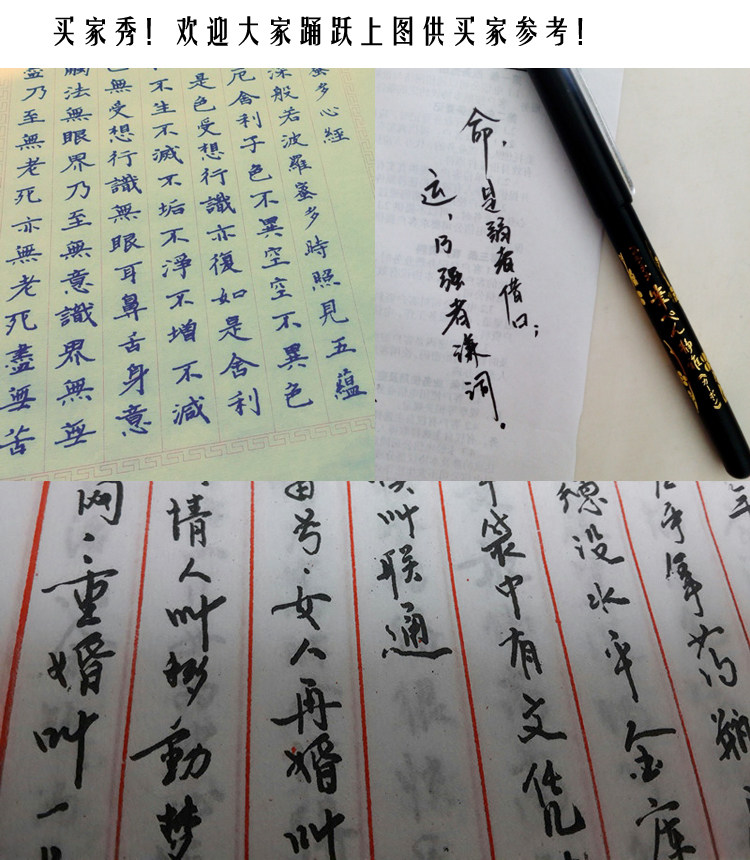 买家秀！欢迎大家踊跃上图供买家参考！
蜜多心經
深般若波羅蜜多時照見五蘊
厄舍利子色不異空空不異色
是色受想行識亦復如是舍利
不生不滅不垢不淨不增不減
色無受想行識無眼耳鼻舌身意
觸法無眼界乃至無意識界無無
盡乃至無老死亦無老死盡無苦
命，是弱者借口；
运，乃强者谦词。
没水平金库
袋中有文凭
叫联通
号：女人再婚叫
情人叫移动梦
网：重婚叫一